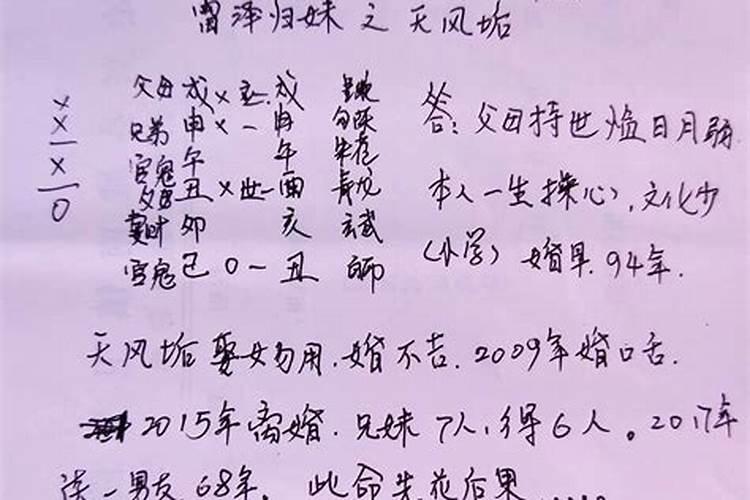 雷泽归妹之天风垢
父母戌×应.戌 螣蛇 答:父母持世临日月弱.
兄弟申×一申 勾陈
官鬼午 午 朱雀
父母丑×世一酉 青龙 本人一生操心,文化少
妻财卯 亥 玄武 (小学)婚早.94年.
官鬼巳0一丑 白虎
天风垢娶女勿用.婚不吉.2009年婚口舌.
2015年离婚.兄妹7人,得6人。2017年
谈一男友68年,此命先花后果